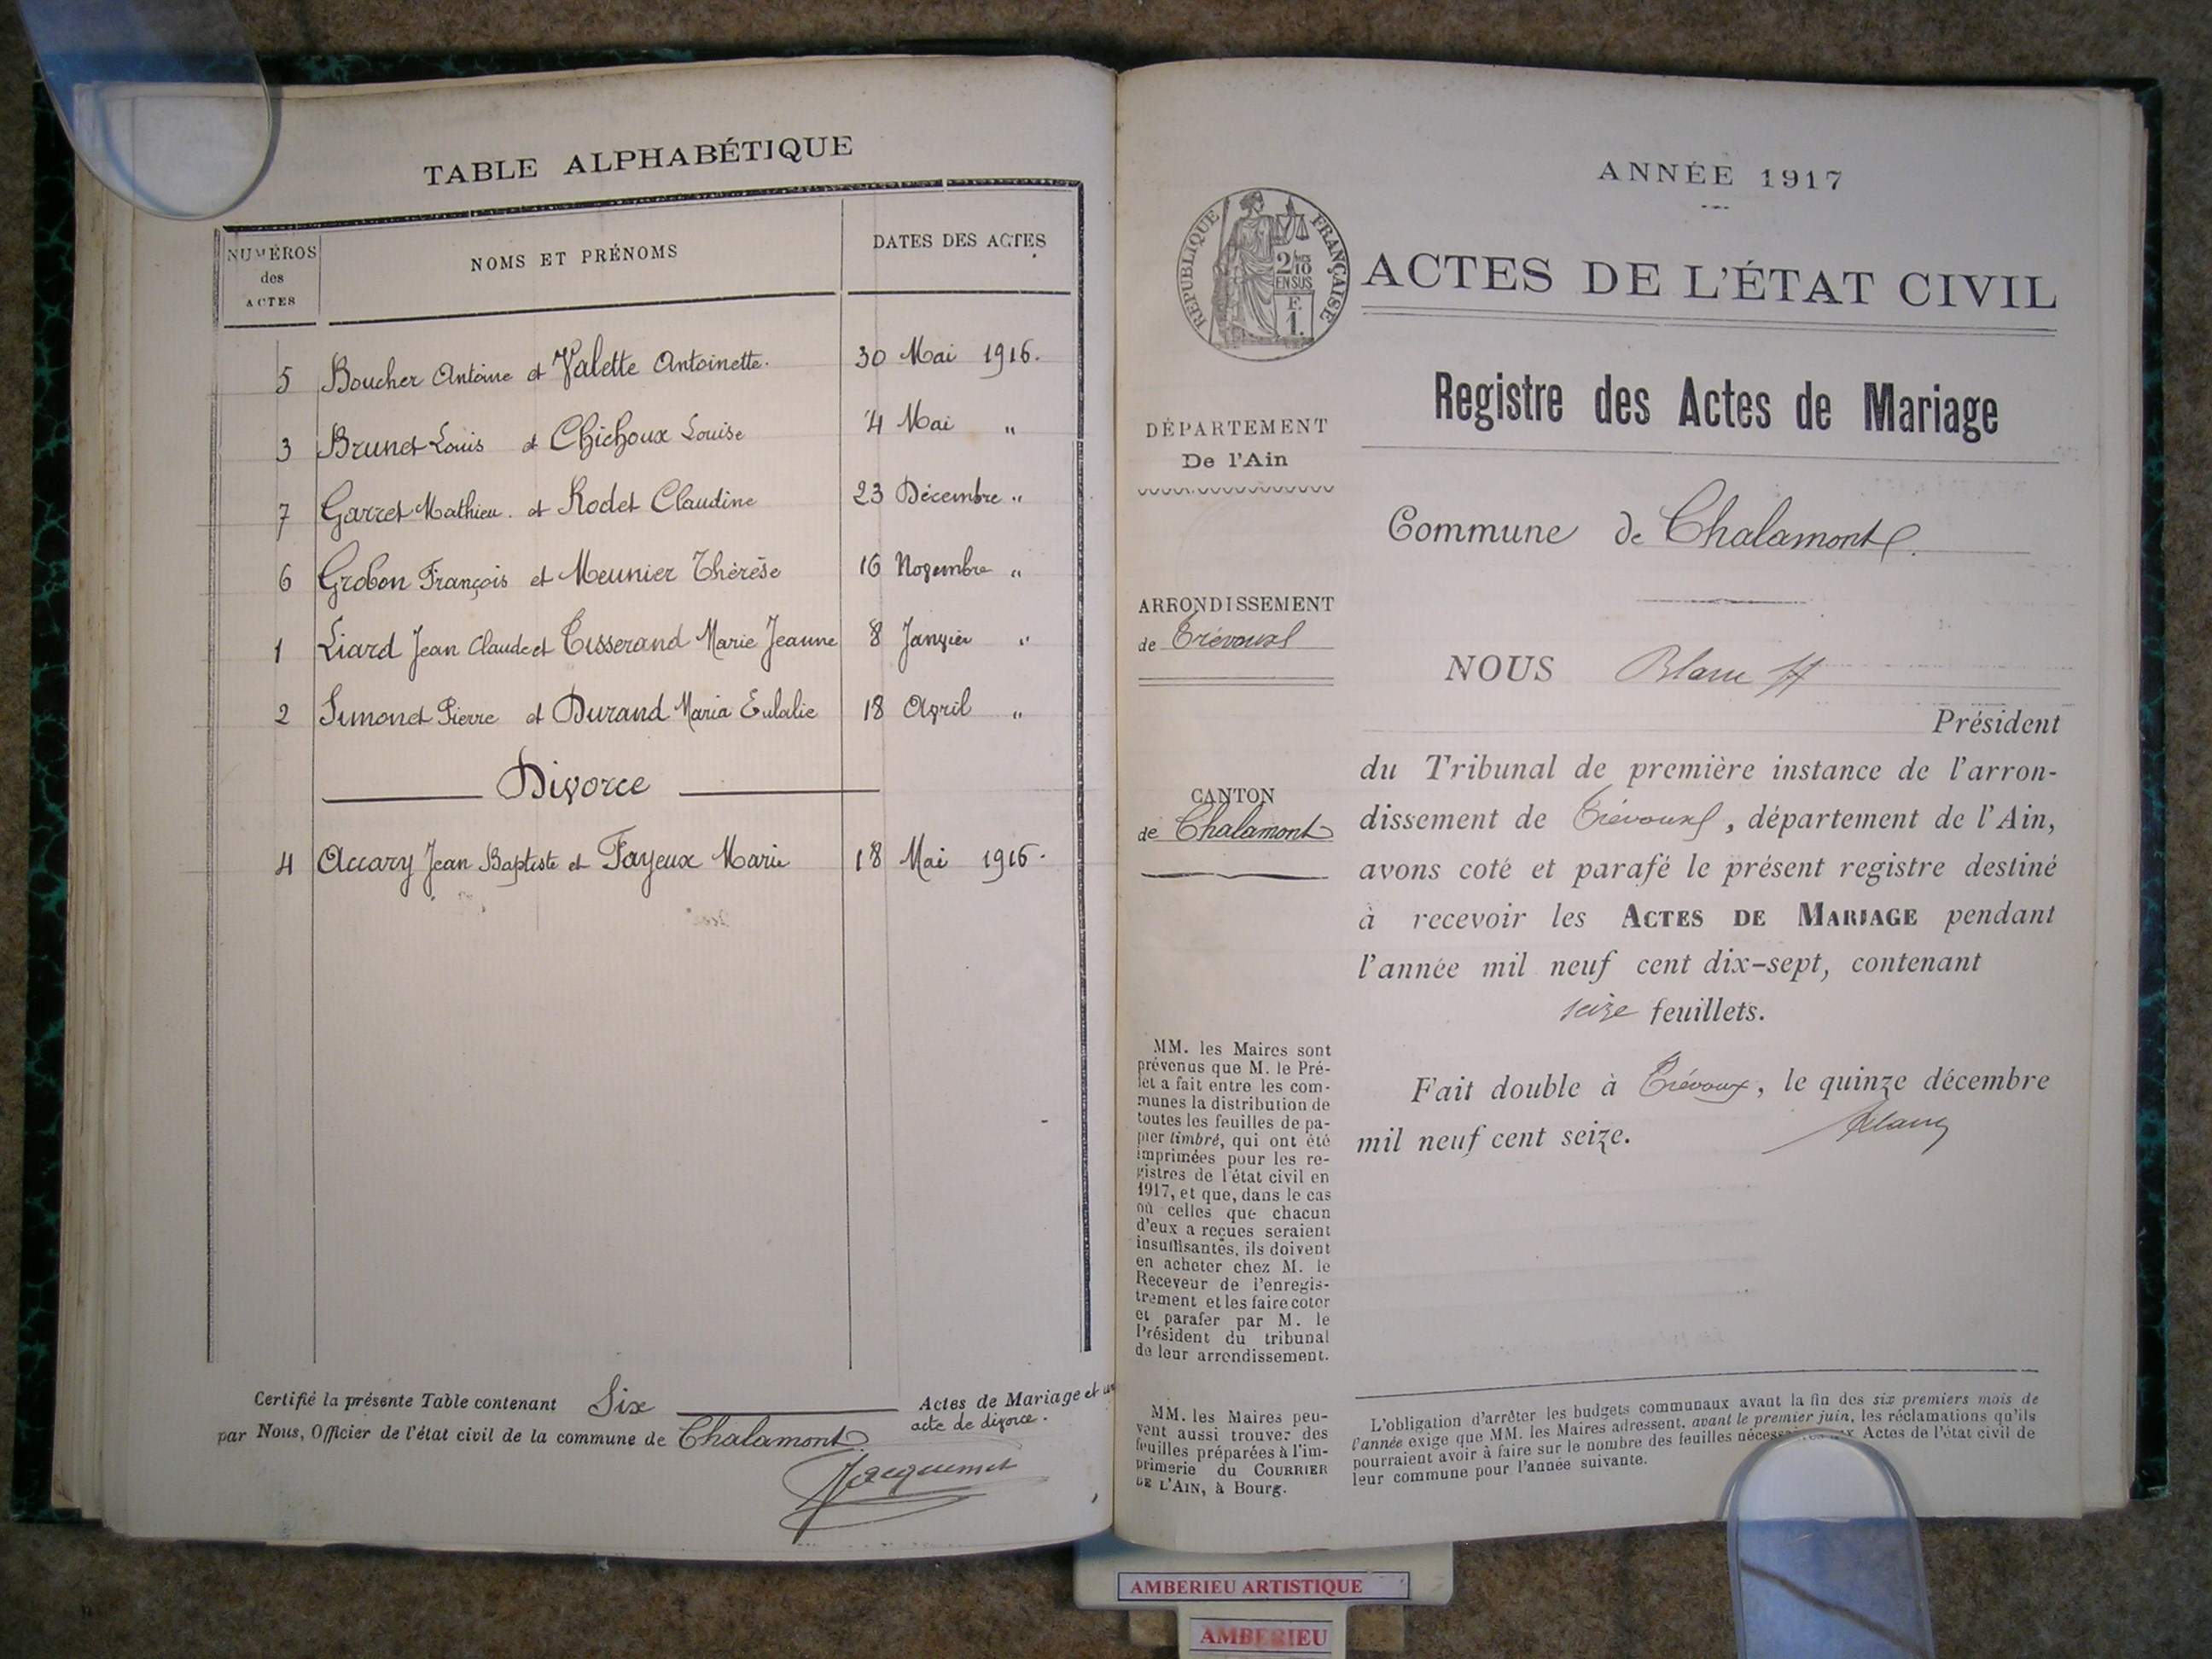 TABLE ALPHABÉTIQUE
NUMÉROS des ACTES
NOMS ET PRÉNOMS
DATES DES ACTES
5 Boucher Antoine et Valette Antoinette. 30 Mai 1916.
3 Brunet Louis et Chichoux Louise 4 Mai "
7 Garret Mathieu. et Rodet Claudine 23 Décembre "
6 Grobon François et Meunier Thérèse 16 Novembre "
1 Liard Jean Claude et Tisserand Marie Jeanne 8 Janvier "
2 Simonet Pierre et Durand Maria Eulalie 18 Avril "
Divorce
4 Accary Jean Baptiste et Fayeux Marie 18 Mai 1916.
Certifié la présente Table contenant Six Actes de Mariage et un
acte de divorce.
par Nous, Officier de l'état civil de la commune de Chalamont
Jacquemet
ANNÉE 1917
RÉPUBLIQUE FRANÇAISE
2/10
EN SUS
F.
1.
ACTES DE L'ÉTAT CIVIL
Registre des Actes de Mariage
DÉPARTEMENT
De l'Ain
Commune de Chalamont.
ARRONDISSEMENT
de Trévoux
NOUS Blanc
Président
CANTON
de Chalamont
du Tribunal de première instance de l'arron-
dissement de Trévoux, département de l'Ain,
avons coté et parafé le présent registre destiné
à recevoir les ACTES DE MARIAGE pendant
l'année mil neuf cent dix-sept, contenant
seize feuillets.
Fait double à Trévoux, le quinze décembre
mil neuf cent seize.
Blanc
MM. les Maires sont
prévenus que M. le Pré-
fet a fait entre les com-
munes la distribution de
toutes les feuilles de pa-
pier timbré, qui ont été
imprimées pour les re-
gistres de l'état civil en
1917, et que, dans le cas
où celles que chacun
d'eux a reçues seraient
insuffisantes, ils doivent
en acheter chez M. le
Receveur de l'enregis-
trement et les faire coter
et parafer par M. le
Président du tribunal
de leur arrondissement.
MM. les Maires peu-
vent aussi trouver des
feuilles préparées à l'im-
primerie du COURRIER
DE L'AIN, à Bourg.
L'obligation d'arrêter les budgets communaux avant la fin des six premiers mois de
l'année exige que MM. les Maires adressent, avant le premier juin, les réclamations qu'ils
pourraient avoir à faire sur le nombre des feuilles Actes de l'état civil de
leur commune pour l'année suivante.
AMBERIEU ARTISTIQUE
AMBERIEU